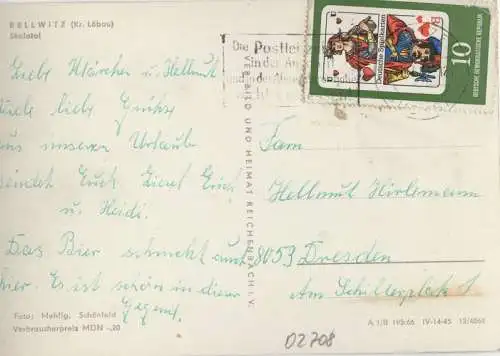 RELLWITZ (Kr. Löbau)
Skalatal
Liebe Klärchen u Hellmut
Viele liebe Grüße
aus unserem Urlaub
sendet Euch
u. Heidi.
Das Bier schmeckt auch
hier. Es ist schön in dieser
Gegend.
Foto: Mehlig, Schönfeld
Verbraucherpreis MDN -,20
VEB BILD UND HEIMAT REICHENBACH I. V.
Die Postleitzahl
in der
Deutsche Spielkarten
10
DEUTSCHE DEMOKRATISCHE REPUBLIK
Fam
Hellmut Hirlemann
8053 Dresden
Am Schillerplatz 1
A 1/B 195/66 IV-14-45 12/4069
02708